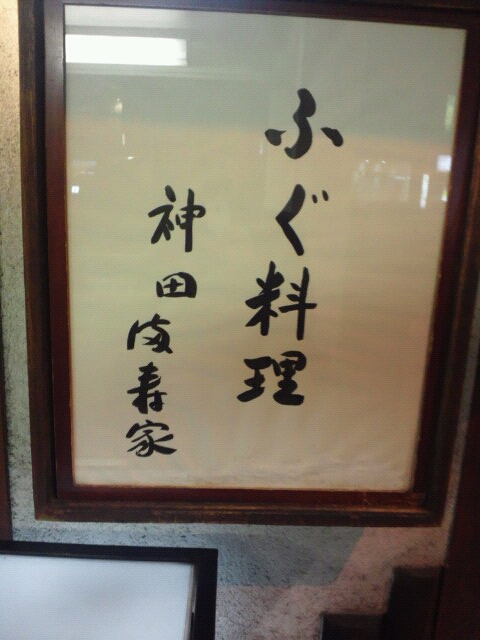 ふぐ料理
神田満寿家